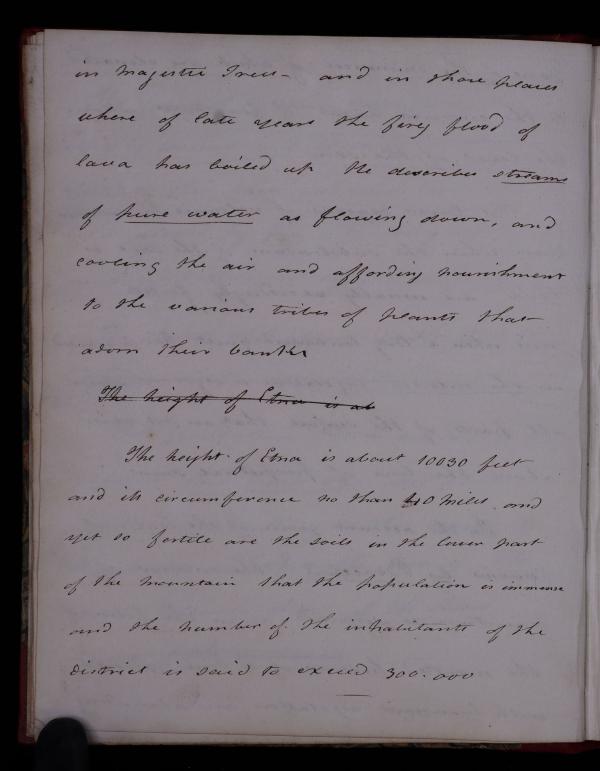 in Majestic Trees - and in those places
where of late years the firey flood of
lava has boiled up He describes streams
of pure water as flowing down, and
cooling the air and affording nourishment
to the various tribes of plants that
adorn their banks
The height of Etna is ab
The height of Etna is about 10030 feet
and its circumference no than 40 Miles and
yet so fertile are the soils in the lower part
of the mountain that the population is immense
and the number of the inhabitants of the
district is said to exceed 300.000